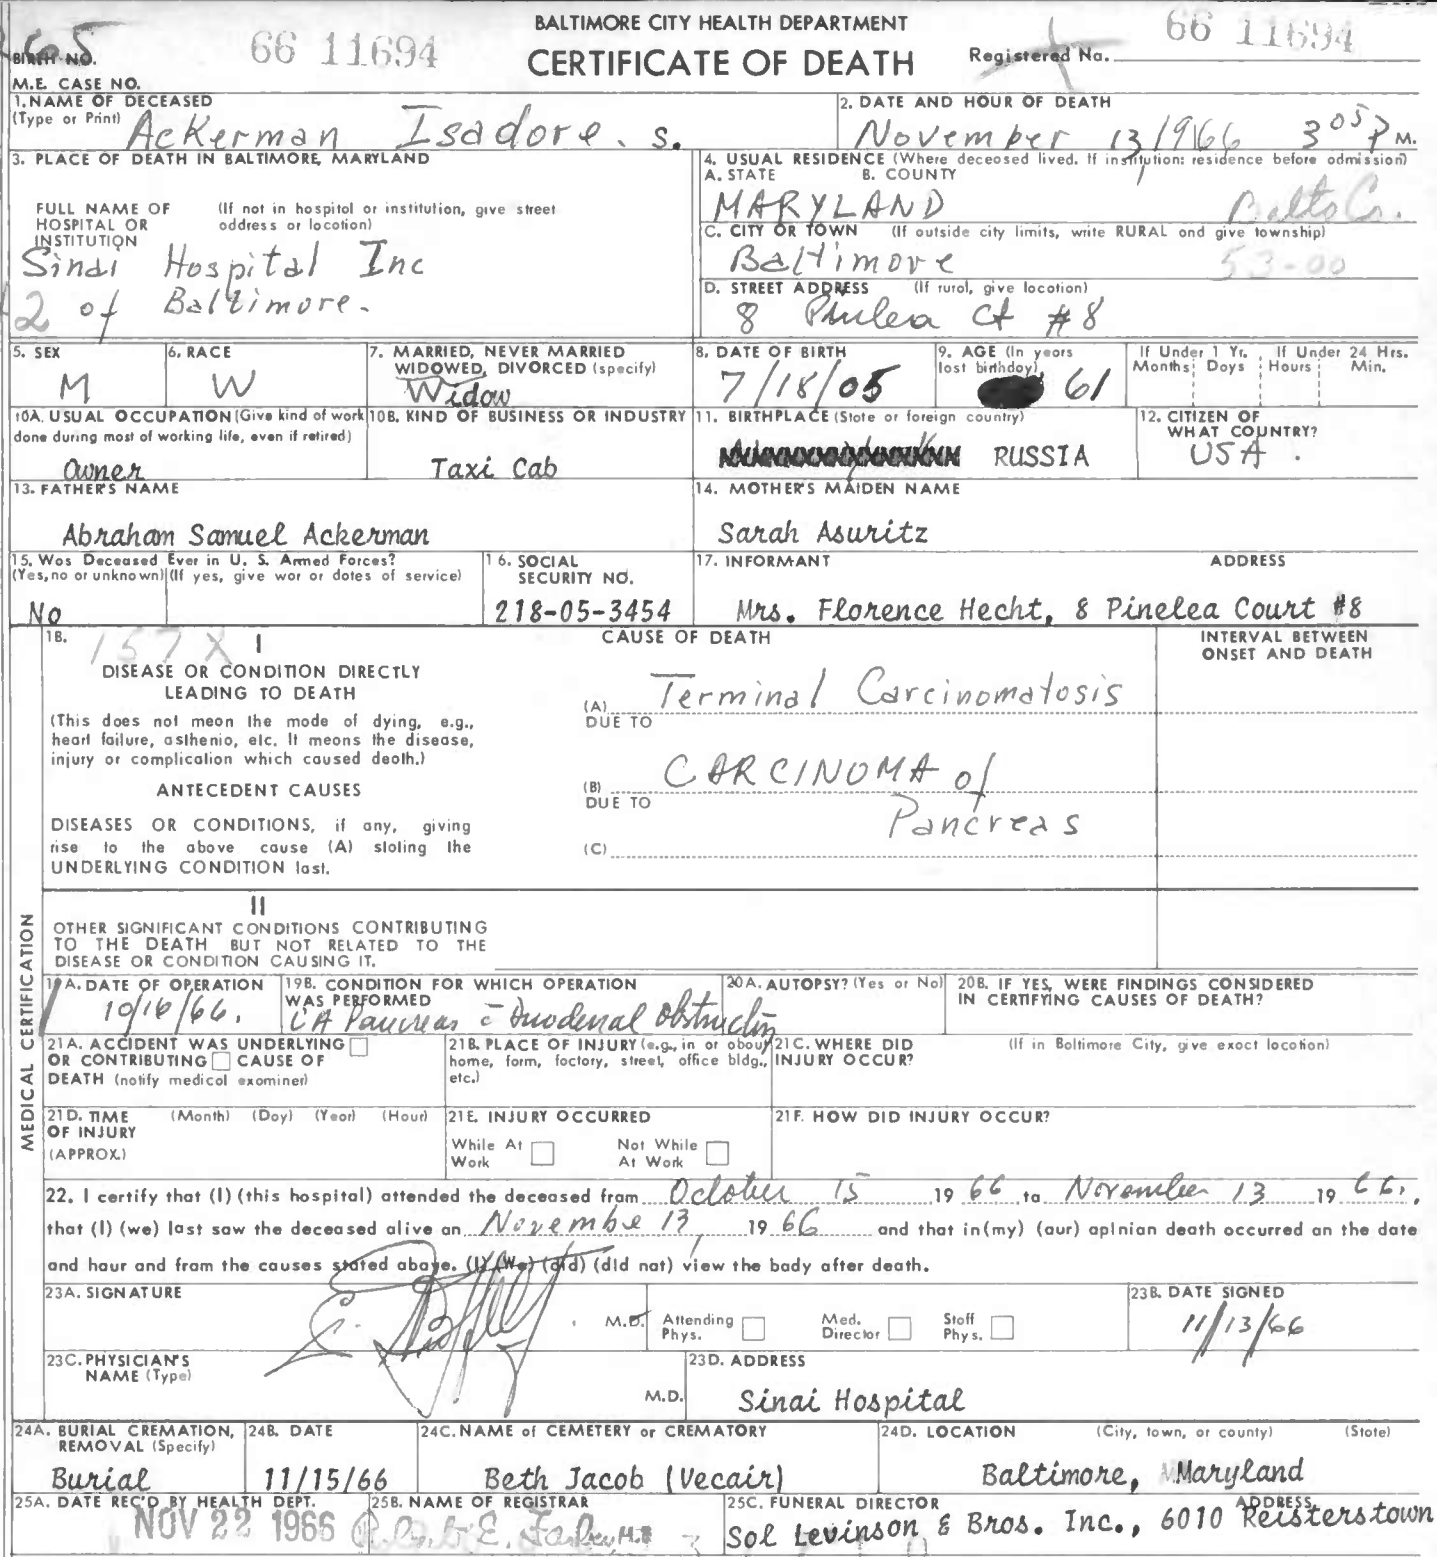 BALTIMORE CITY HEALTH DEPARTMENT
CERTIFICATE OF DEATH
65
BIRTH NO.
66 11694
Registered No.
66 11694
M.E. CASE NO.
1. NAME OF DECEASED
(Type or Print) Ackerman Isadore. S.
2. DATE AND HOUR OF DEATH
November 13, 1966 3 05 P M.
3. PLACE OF DEATH IN BALTIMORE, MARYLAND
FULL NAME OF HOSPITAL OR INSTITUTION
(If not in hospital or institution, give street address or location)
Sinai Hospital Inc
2 of Baltimore.
4. USUAL RESIDENCE (Where deceased lived. If institution: residence before admission)
A. STATE B. COUNTY
MARYLAND Balto Co.
C. CITY OR TOWN (If outside city limits, write RURAL and give township)
Baltimore 53-00
D. STREET ADDRESS (If rural, give location)
8 Philea Ct #8
5. SEX
M
6. RACE
W
7. MARRIED, NEVER MARRIED
WIDOWED, DIVORCED (specify)
Widow
8. DATE OF BIRTH
7/18/05
9. AGE (In years
last birthday)
61
If Under 1 Yr. If Under 24 Hrs.
Months Days Hours Min.
10A. USUAL OCCUPATION (Give kind of work
done during most of working life, even if retired)
Owner
10B. KIND OF BUSINESS OR INDUSTRY
Taxi Cab
11. BIRTHPLACE (State or foreign country)
RUSSIA
12. CITIZEN OF
WHAT COUNTRY?
USA.
13. FATHER'S NAME
Abraham Samuel Ackerman
14. MOTHER'S MAIDEN NAME
Sarah Asuritz
15. Was Deceased Ever in U. S. Armed Forces?
(Yes, no or unknown) (If yes, give war or dates of service)
No
16. SOCIAL
SECURITY NO.
218-05-3454
17. INFORMANT ADDRESS
Mrs. Florence Hecht, 8 Pinelea Court #8
MEDICAL CERTIFICATION
18. 157X I
CAUSE OF DEATH
INTERVAL BETWEEN
ONSET AND DEATH
DISEASE OR CONDITION DIRECTLY
LEADING TO DEATH
(This does not mean the mode of dying, e.g.,
heart failure, asthenia, etc. It means the disease,
injury or complication which caused death.)
(A) Terminal Carcinomatosis
DUE TO
ANTECEDENT CAUSES
(B) CARCINOMA of
DUE TO Pancreas
DISEASES OR CONDITIONS, if any, giving
rise to the above cause (A) stating the
UNDERLYING CONDITION last.
(C)
II
OTHER SIGNIFICANT CONDITIONS CONTRIBUTING
TO THE DEATH BUT NOT RELATED TO THE
DISEASE OR CONDITION CAUSING IT.
19A. DATE OF OPERATION
10/16/66.
19B. CONDITION FOR WHICH OPERATION
WAS PERFORMED
CA Pancreas c̄ Duodenal Obstruction
20A. AUTOPSY? (Yes or No)
20B. IF YES, WERE FINDINGS CONSIDERED
IN CERTIFYING CAUSES OF DEATH?
21A. ACCIDENT WAS UNDERLYING
OR CONTRIBUTING CAUSE OF
DEATH (notify medical examiner)
21B. PLACE OF INJURY (e.g., in or about
home, farm, factory, street, office bldg.,
etc.)
21C. WHERE DID
INJURY OCCUR?
(If in Baltimore City, give exact location)
21D. TIME (Month) (Day) (Year) (Hour)
OF INJURY
(APPROX.)
21E. INJURY OCCURRED
While At Work Not While At Work
21F. HOW DID INJURY OCCUR?
22. I certify that (I) (this hospital) attended the deceased from October 15 19 66 to November 13 19 66,
that (I) (we) last saw the deceased alive on Novembe 13, 19 66 and that in (my) (our) opinion death occurred on the date
and hour and from the causes stated above. (I) (We) (did) (did not) view the body after death.
23A. SIGNATURE
M.D.
Attending Phys. Med. Director Staff Phys.
23B. DATE SIGNED
11/13/66
23C. PHYSICIAN'S
NAME (Type)
M.D.
23D. ADDRESS
Sinai Hospital
24A. BURIAL CREMATION,
REMOVAL (Specify)
Burial
24B. DATE
11/15/66
24C. NAME of CEMETERY or CREMATORY
Beth Jacob (Vecair)
24D. LOCATION (City, town, or county) (State)
Baltimore, Maryland
25A. DATE REC'D BY HEALTH DEPT.
NOV 22 1966
25B. NAME OF REGISTRAR
Robert E. Farber M.D.
25C. FUNERAL DIRECTOR ADDRESS
Sol Levinson & Bros. Inc., 6010 Reisterstown